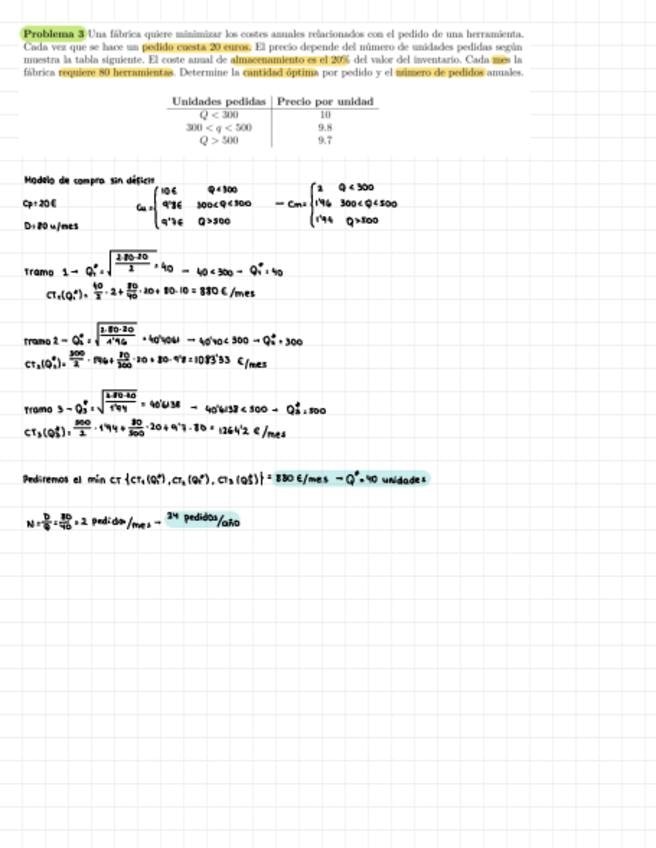 Problema 3 Una fábrica quiere minimizar los costes anuales relacionados con el pedido de una herramienta.
Cada vez que se hace un pedido cuesta 20 euros. El precio depende del número de unidades pedidas según
muestra la tabla siguiente. El coste anual de almacenamiento es el 20% del valor del inventario. Cada mes la
fábrica requiere 80 herramientas. Determine la cantidad óptima por pedido y el número de pedidos anuales.
Unidades pedidas Precio por unidad
Q < 300 10
300 < q < 500 9.8
Q > 500 9.7
Modelo de compra sin déficit
Cp=20€
D=80 u/mes
Cu= { 10€ Q<300
9'8€ 300<Q<500
9'7€ Q>500
→ Cm= { 2 Q<300
1'96 300<Q<500
1'94 Q>500
Tramo 1 → Q₁* = √(2·80·20/2) = 40 → 40<300 → Q₁* = 40
CT₁(Q₁*) = 40/2 · 2 + 80/40 · 20 + 80·10 = 880 €/mes
Tramo 2 → Q₂* = √(2·80·20/1'96) = 40'4061 → 40'40<300 → Q₂* = 300
CT₂(Q₂*) = 300/2 · 1'96 + 80/300 · 20 + 80·9'8 = 1083'33 €/mes
Tramo 3 → Q₃* = √(2·80·20/1'94) = 40'6138 → 40'6138<500 → Q₃* = 500
CT₃(Q₃*) = 500/2 · 1'94 + 80/500 · 20 + 9'7 · 80 = 1264'2 €/mes
Pediremos el min CT {CT₁(Q₁*), CT₂(Q₂*), CT₃(Q₃*)} = 880 €/mes → Q* = 40 unidades
N = D/Q = 80/40 = 2 pedidos/mes → 24 pedidos/año